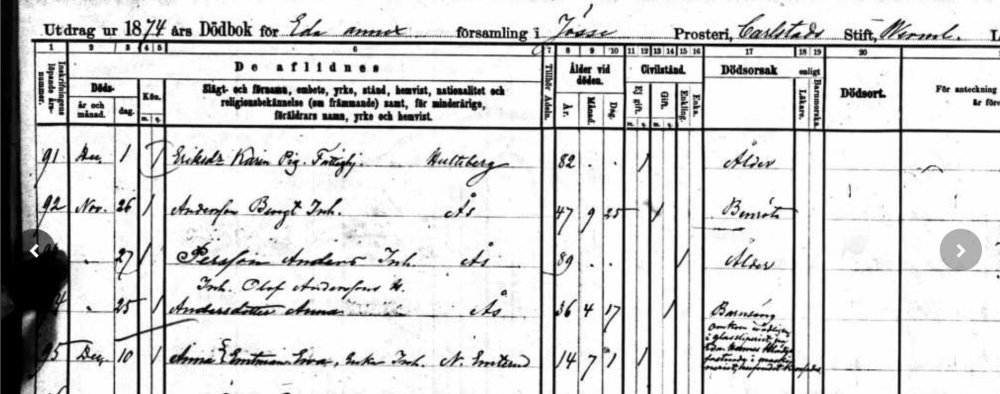 Utdrag ur 1874 års Dödbok för Eda annex församling i Jösse Prosteri, Carlstads Stift, Werml. L
1 2 3 4 5 6 7 8 9 10 11 12 13 14 15 16 17 18 19 20
Inskrifningens löpande års-nummer.
Döds-
år och månad.
dag.
Kön.
m. q.
De aflidnes
Slägt- och förnamn, embete, yrke, stånd, hemvist, nationalitet och
religionsbekännelse (om främmande) samt, för minderårige,
föräldrars namn, yrke och hemvist.
Tillhör Adeln.
Ålder vid döden.
År. Månad. Dag.
Civilstånd.
Ej gift. Gift. Enkling. Enka.
m. q. m. q.
Dödsorsak enligt
Läkare. Barnmorska.
Dödsort.
För anteckning
är före
91 Dec. 1 / Eriksdr Karin Pig. Fattighj. Hultsberg 82 . . / Ålder
92 Nov. 26 / Andersson Bengt Inh. Ås 47 9 25 / Benröta
" 27 / Persson Anders Inh. Ås 89 . . / Ålder
Inh. Olof Anderssons H.
" 25 / Andersdotter Anna Ås 36 4 17 / Barnsäng
95 Dec. 10 / Anna Inh. N. 14 7 1 /
Omkom
i glassliperiet på
Eda